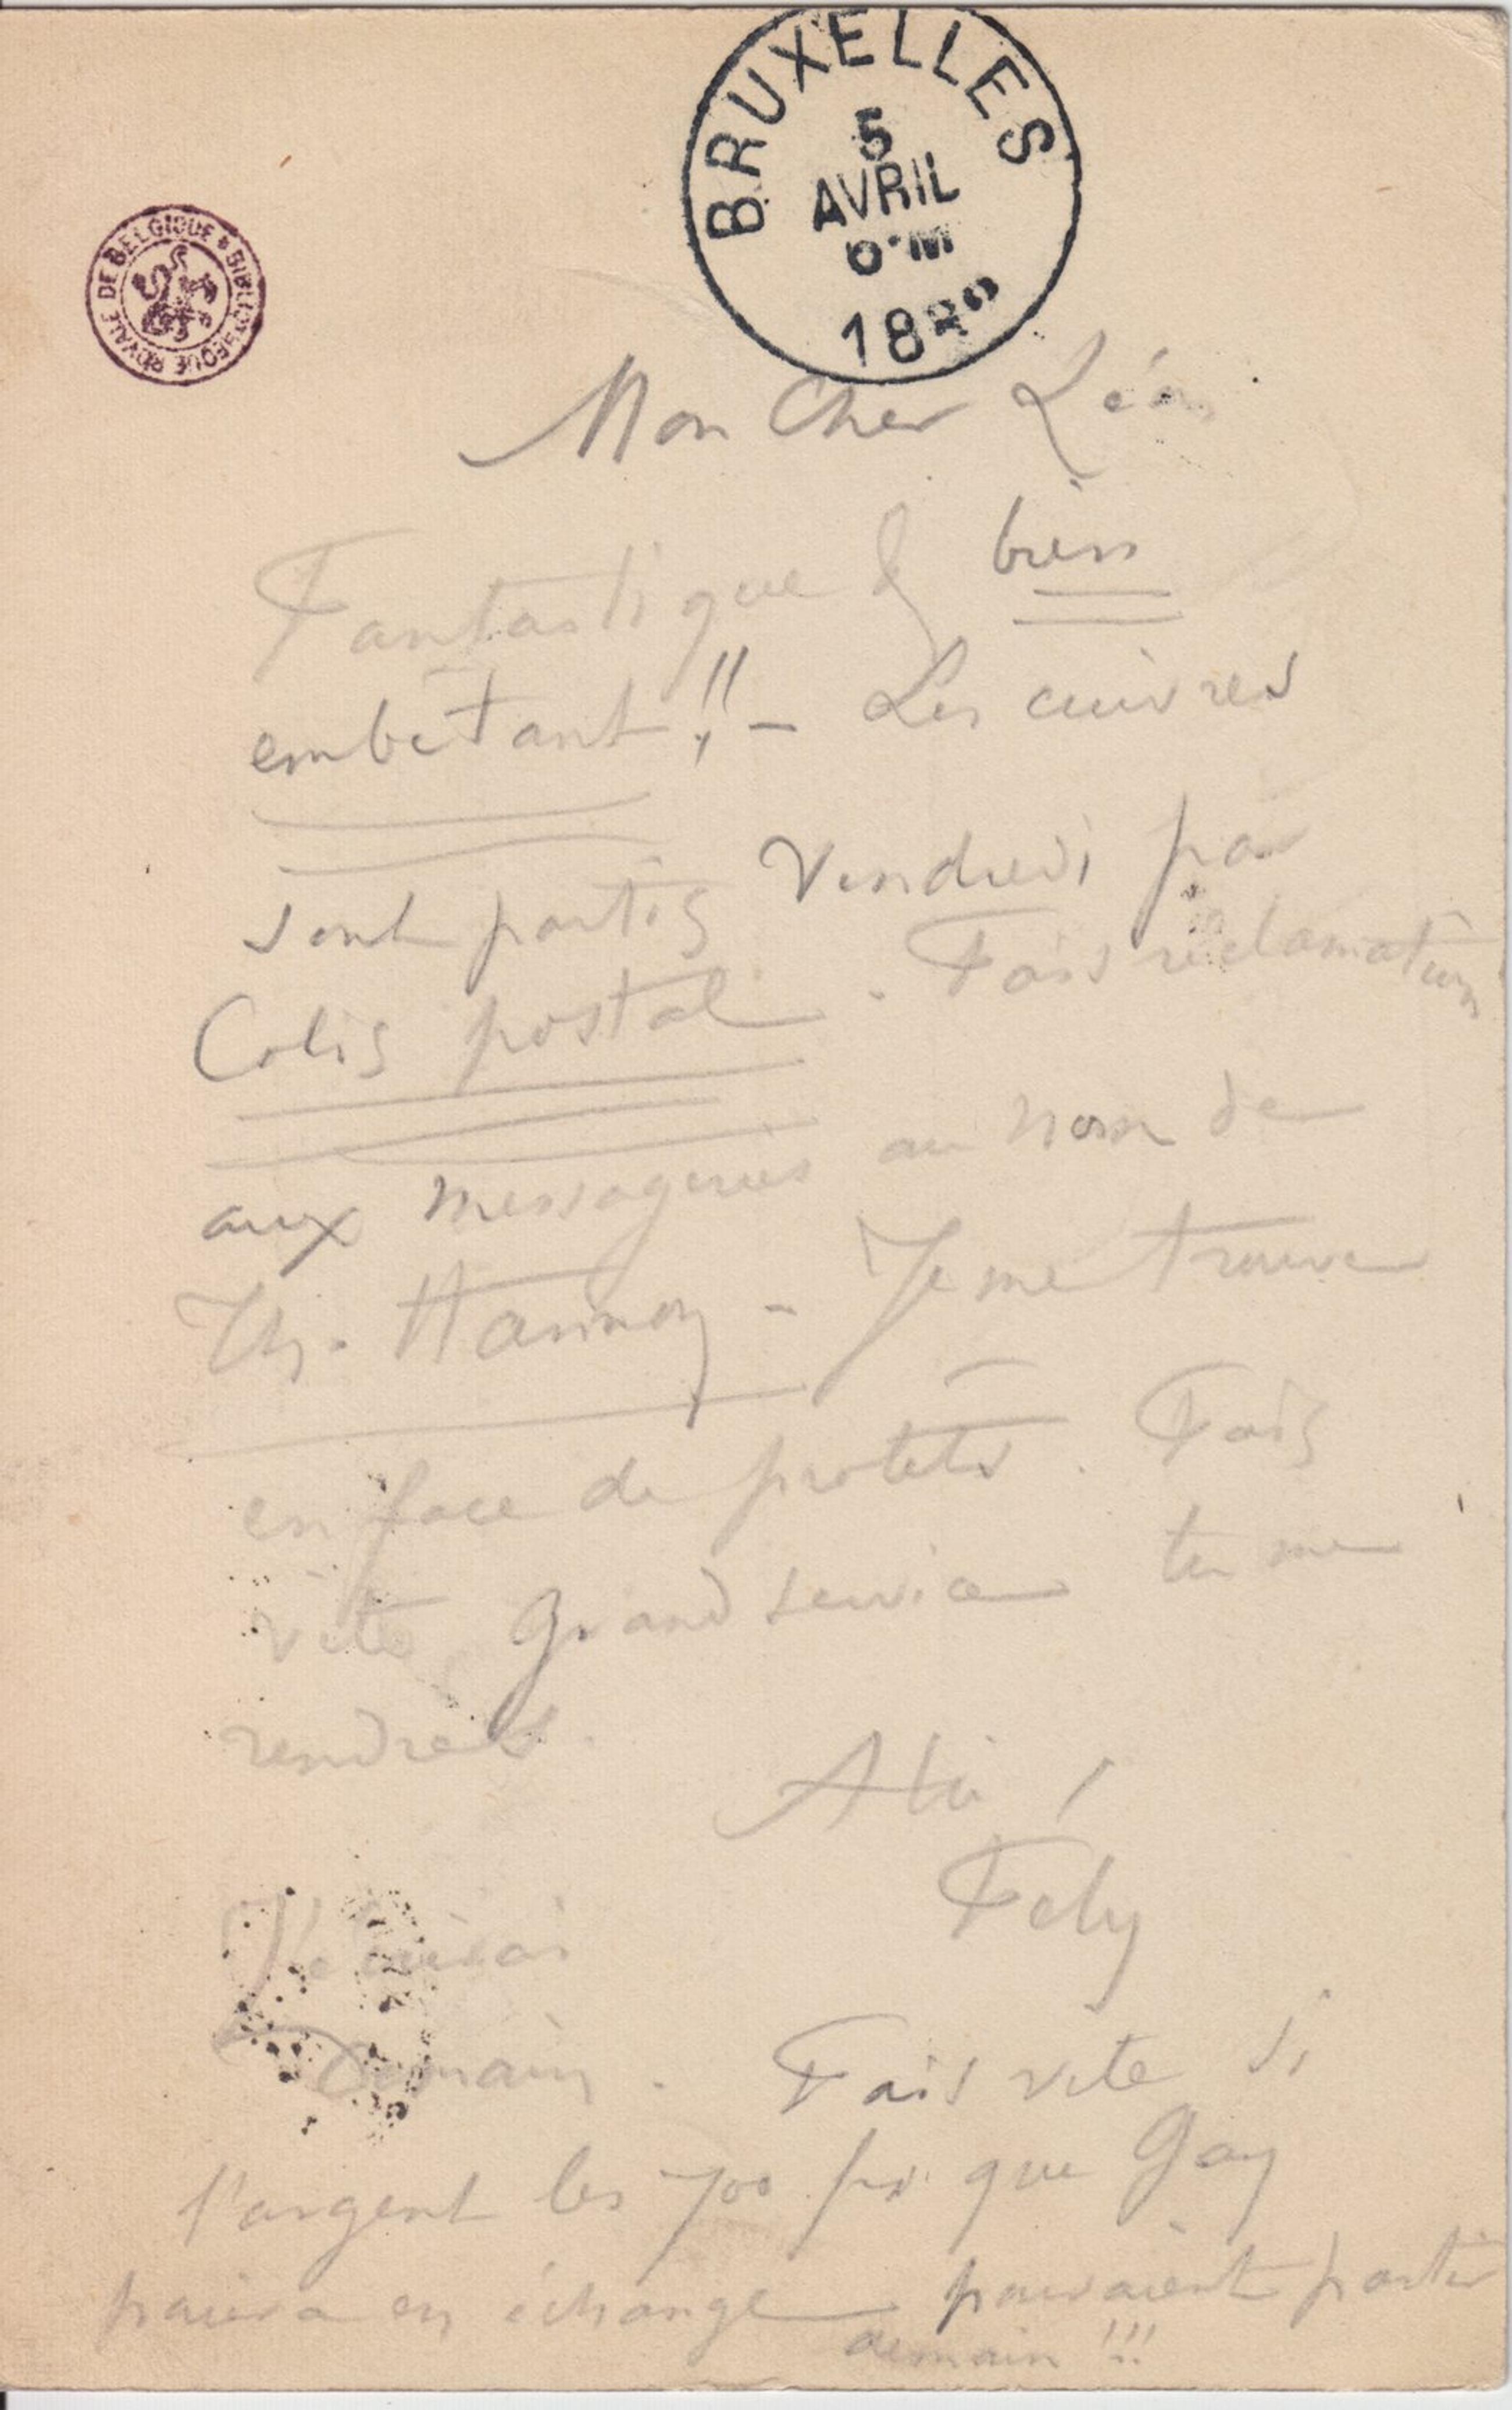 BRUXELLES
5
AVRIL
188
BIBLIOTHEQUE ROYALE DE BELGIQUE
Mon Cher Léon
Fantastique & bien
embêtant !! - Les cuivres
sont partis Vendredi par
Colis postal . Fais réclamation
aux messageries au nom de
Th. Hannon - Je me trouve
en face de protêts . Fais
vite, Grand service tu me
rendras.
A toi !
Fély
J'écrirai
Demain . Fais vite si
l'argent les 700 frs que Gay
paiera en échange pouvaient partir
demain !!!